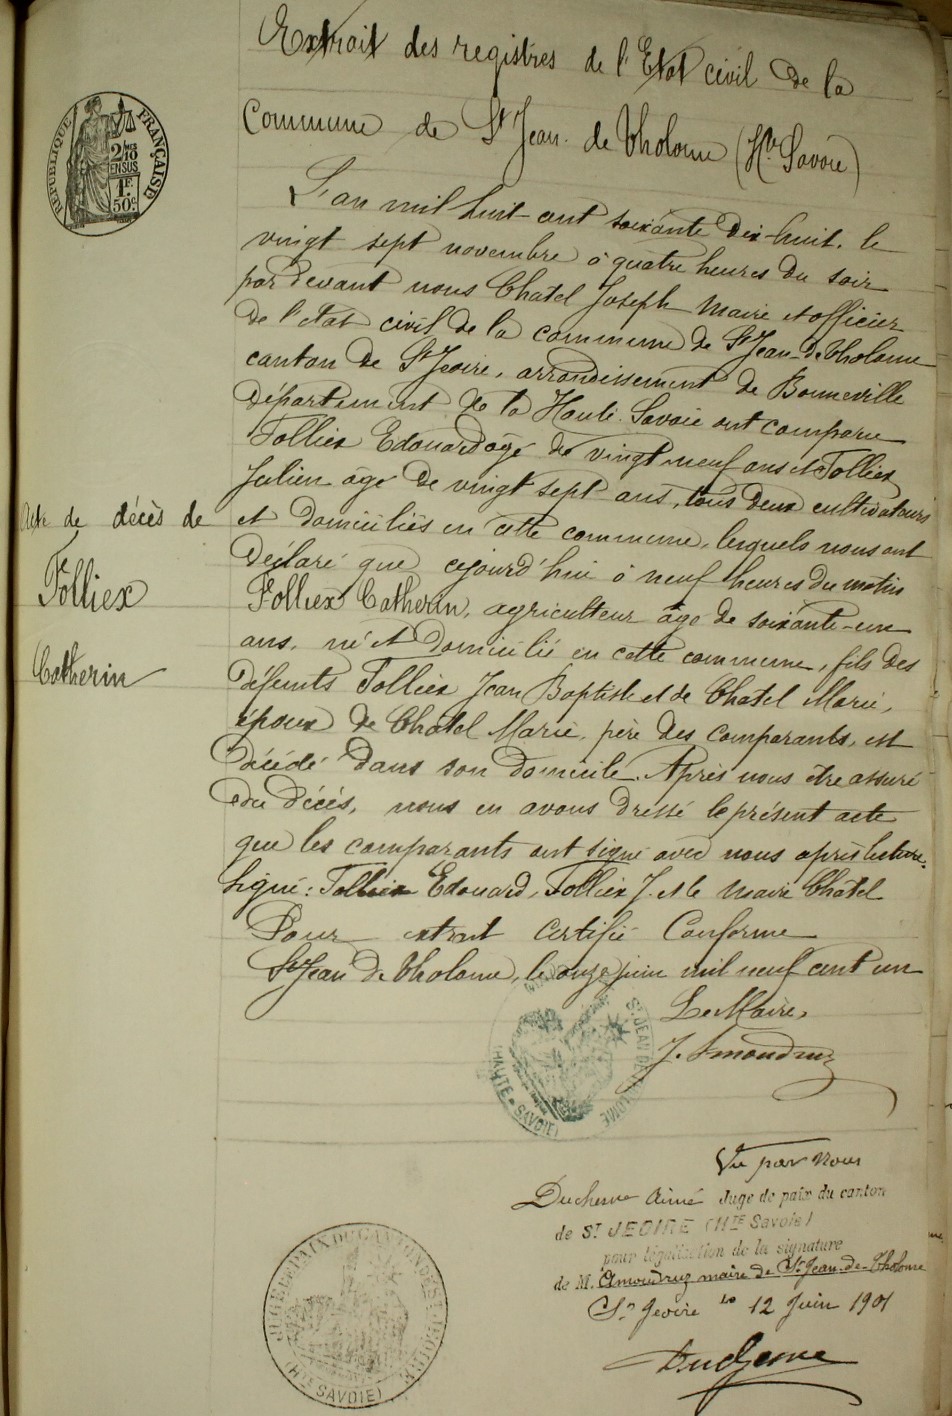 Extrait des registres de l'Etat civil de la
Commune de St Jean de Tholome (Hte Savoie)
REPUBLIQUE FRANÇAISE
2/10 EN SUS
1F. 50c.
L'an mil huit cent soixante dix-huit, le
vingt sept novembre à quatre heures du soir
par devant nous Chatel Joseph Maire et officier
de l'etat civil de la commune de St Jean-de-Tholome
canton de St Jeoire, arrondissement de Bonneville
département de la Haute-Savoie ont comparu
Folliex Edouard âgé de vingt-neuf ans et Folliex
Julien âgé de vingt sept ans, tous deux cultivateurs
et domiciliés en cette commune, lesquels nous ont
déclaré que cejourd'hui à neuf heures du matin
Folliex Catherin, agriculteur âgé de soixante-un
ans, né et domicilié en cette commune, fils des
défunts Folliex Jean Baptiste et de Chatel Marie,
époux de Chatel Marie, père des comparants, est
décédé dans son domicile. Après nous être assuré
du décès, nous en avons dressé le présent acte
que les comparants ont signé avec nous après lecture.
Signé: Folliex Edouard, Folliex J. et le Maire Châtel
Acte de décès de
Folliex
Catherin
Pour extrait certifié Conforme
St Jean de Tholome, le onze juin mil neuf cent un
Le Maire,
J. Amoudruz
ST JEAN DE THOLOME
(HAUTE-SAVOIE)
Vu par Nous
Duchesne Aimé Juge de paix du canton
de ST JEOIRE (HTE Savoie)
pour légalisation de la signature
de M. Amoudruz maire de St Jean-de-Tholome
St Jeoire le 12 Juin 1901
Duchesne
JUGE DE PAIX DU CANTON DE ST JEOIRE
(HTE SAVOIE)